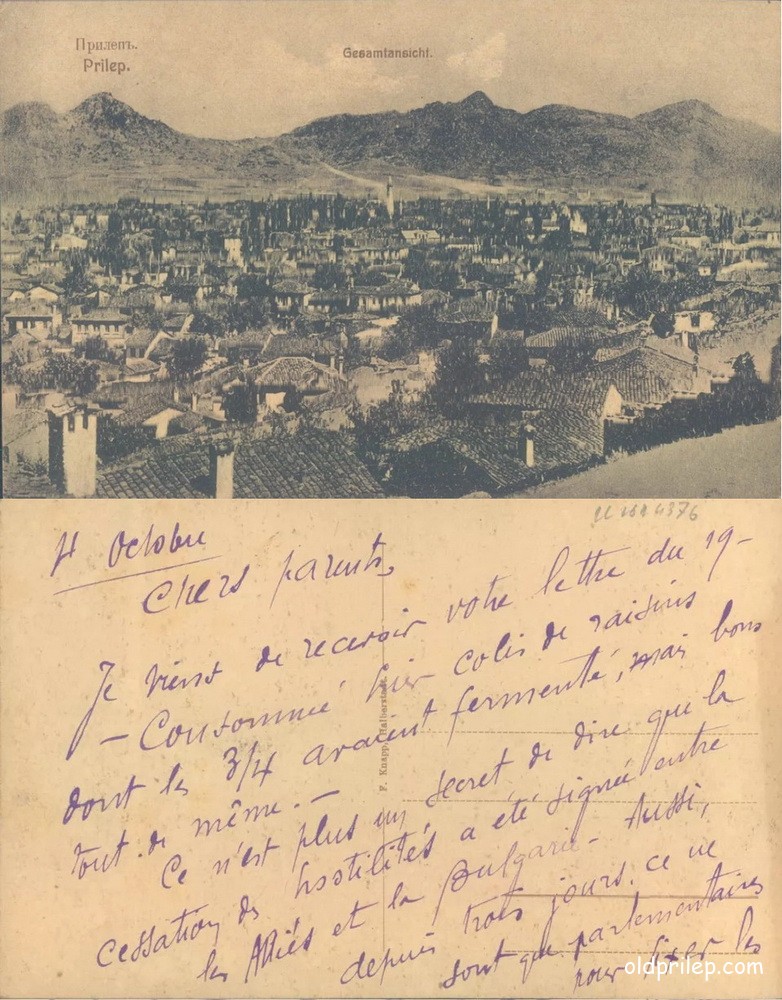 Прилепъ.
Prilep.
Gesamtansicht.
4 Octobre
Chers parents,
Je viens de recevoir votre lettre du 19-
- Consommé hier colis de raisins
dont les 3/4 avaient fermenté, mais bons
tout de même. -
Ce n'est plus un secret de dire que la
cessation des hostilités a été signée entre
les Alliés et la Bulgarie - Aussi,
depuis trois jours, ce ne
sont que parlementaires
pour fixer les
F. Knapp, Halberstadt.
oldprilep.com